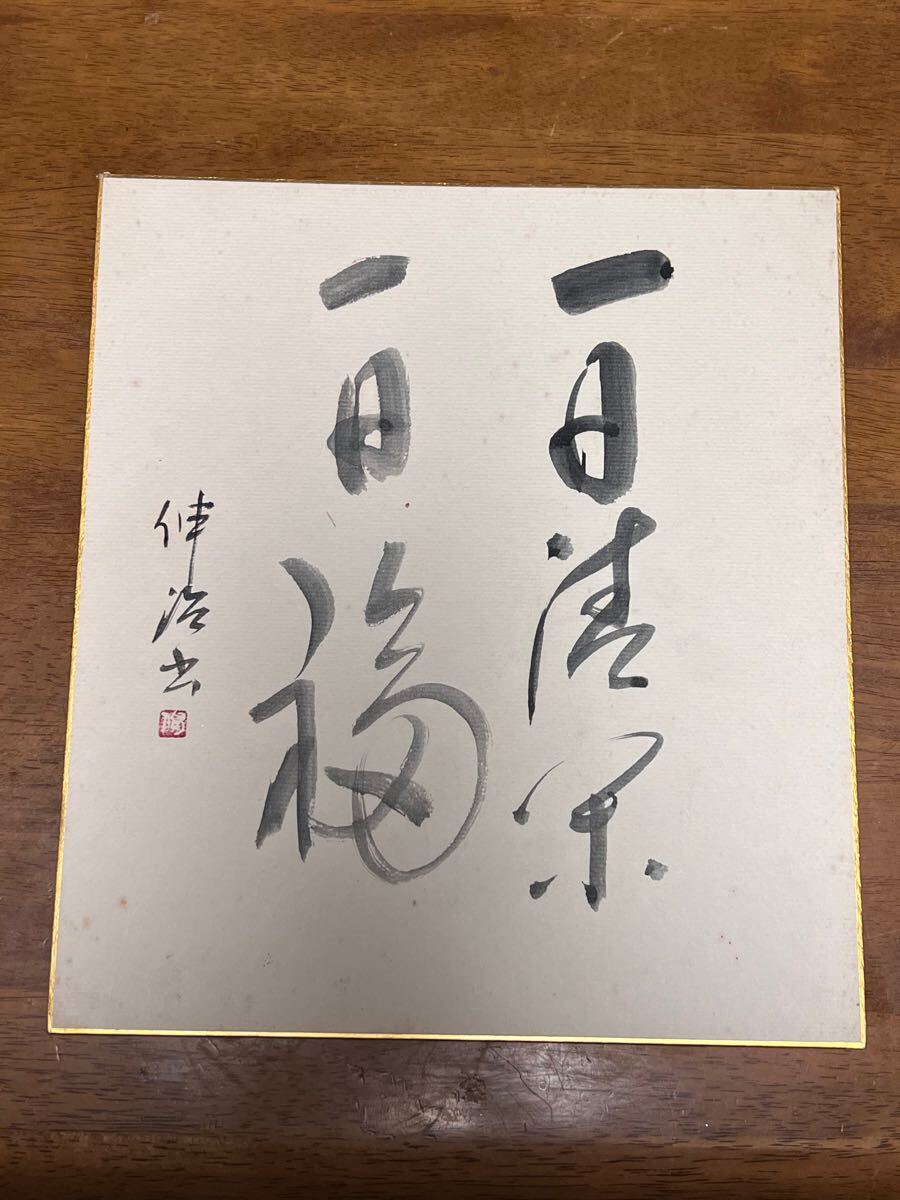 一日清閑
一日福
伸治書